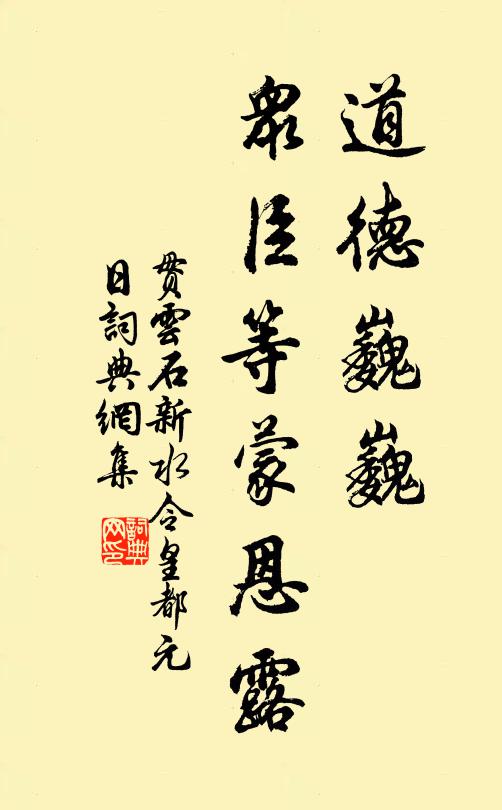 道德巍巍
衆臣等蒙恩露
贯雲石新水令皇都元
日詞典網集
詞典
网印